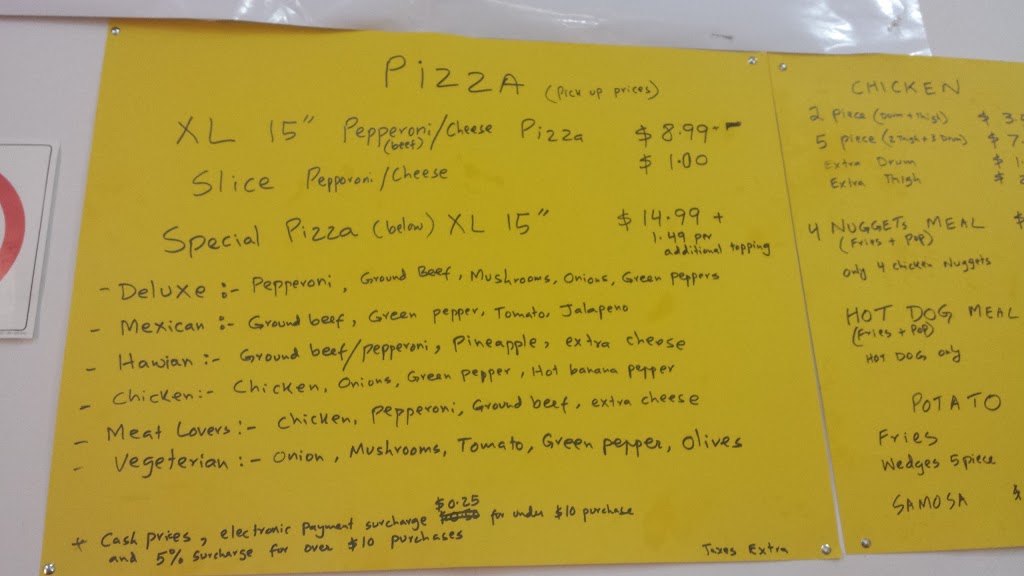 PiZZA (Pick up prices)
XL 15" Pepperoni/Cheese Pizza $8.99
(beef)
Slice Pepporoni/Cheese $1.00
Special Pizza (below) XL 15" $14.99 +
1.49 per
additional topping
- Deluxe :- Pepperoni, Ground Beef, Mushrooms, Onions, Green peppers
- Mexican :- Ground beef, Green pepper, Tomato, Jalapeno
- Hawian :- Ground beef/pepperoni, Pineapple, extra cheese
- Chicken :- Chicken, Onions, Green pepper, Hot banana pepper
- Meat Lovers :- Chicken, Pepperoni, Ground beef, extra cheese
- Vegeterian :- Onion, Mushrooms, Tomato, Green pepper, Olives
$0.25
* Cash prises, electronic Payment surcharge $0.50 for under $10 purchase
and 5% surcharge for over $10 purchases
Taxes Extra
CHICKEN
2 piece (Drum + thigh) $3.
5 piece (2 Thigh + 3 Drum) $7.
Extra Drum $1.
Extra Thigh $
4 NUGGETS MEAL $
(Fries + Pop)
only 4 chicken Nuggets
HOT DOG MEAL
(Fries + Pop)
HOT DOG only
POTATO
Fries
Wedges 5 piece
SAMOSA